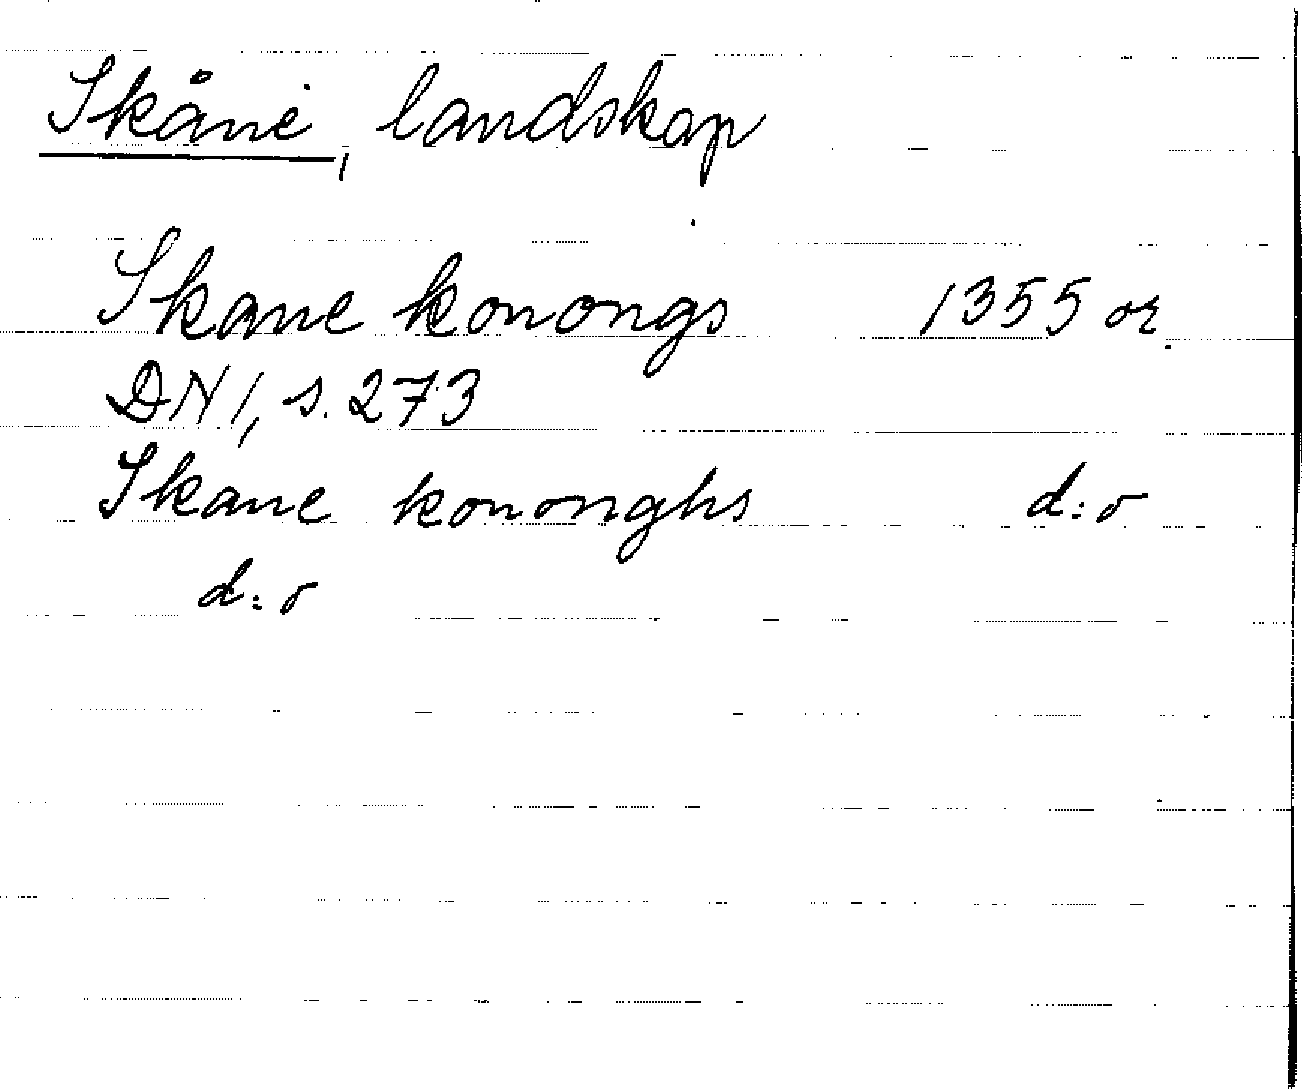 Skåne, landskap
Skane konongs 1355 or.
DN 1, s. 273
Skane kononghs d:o
d:o